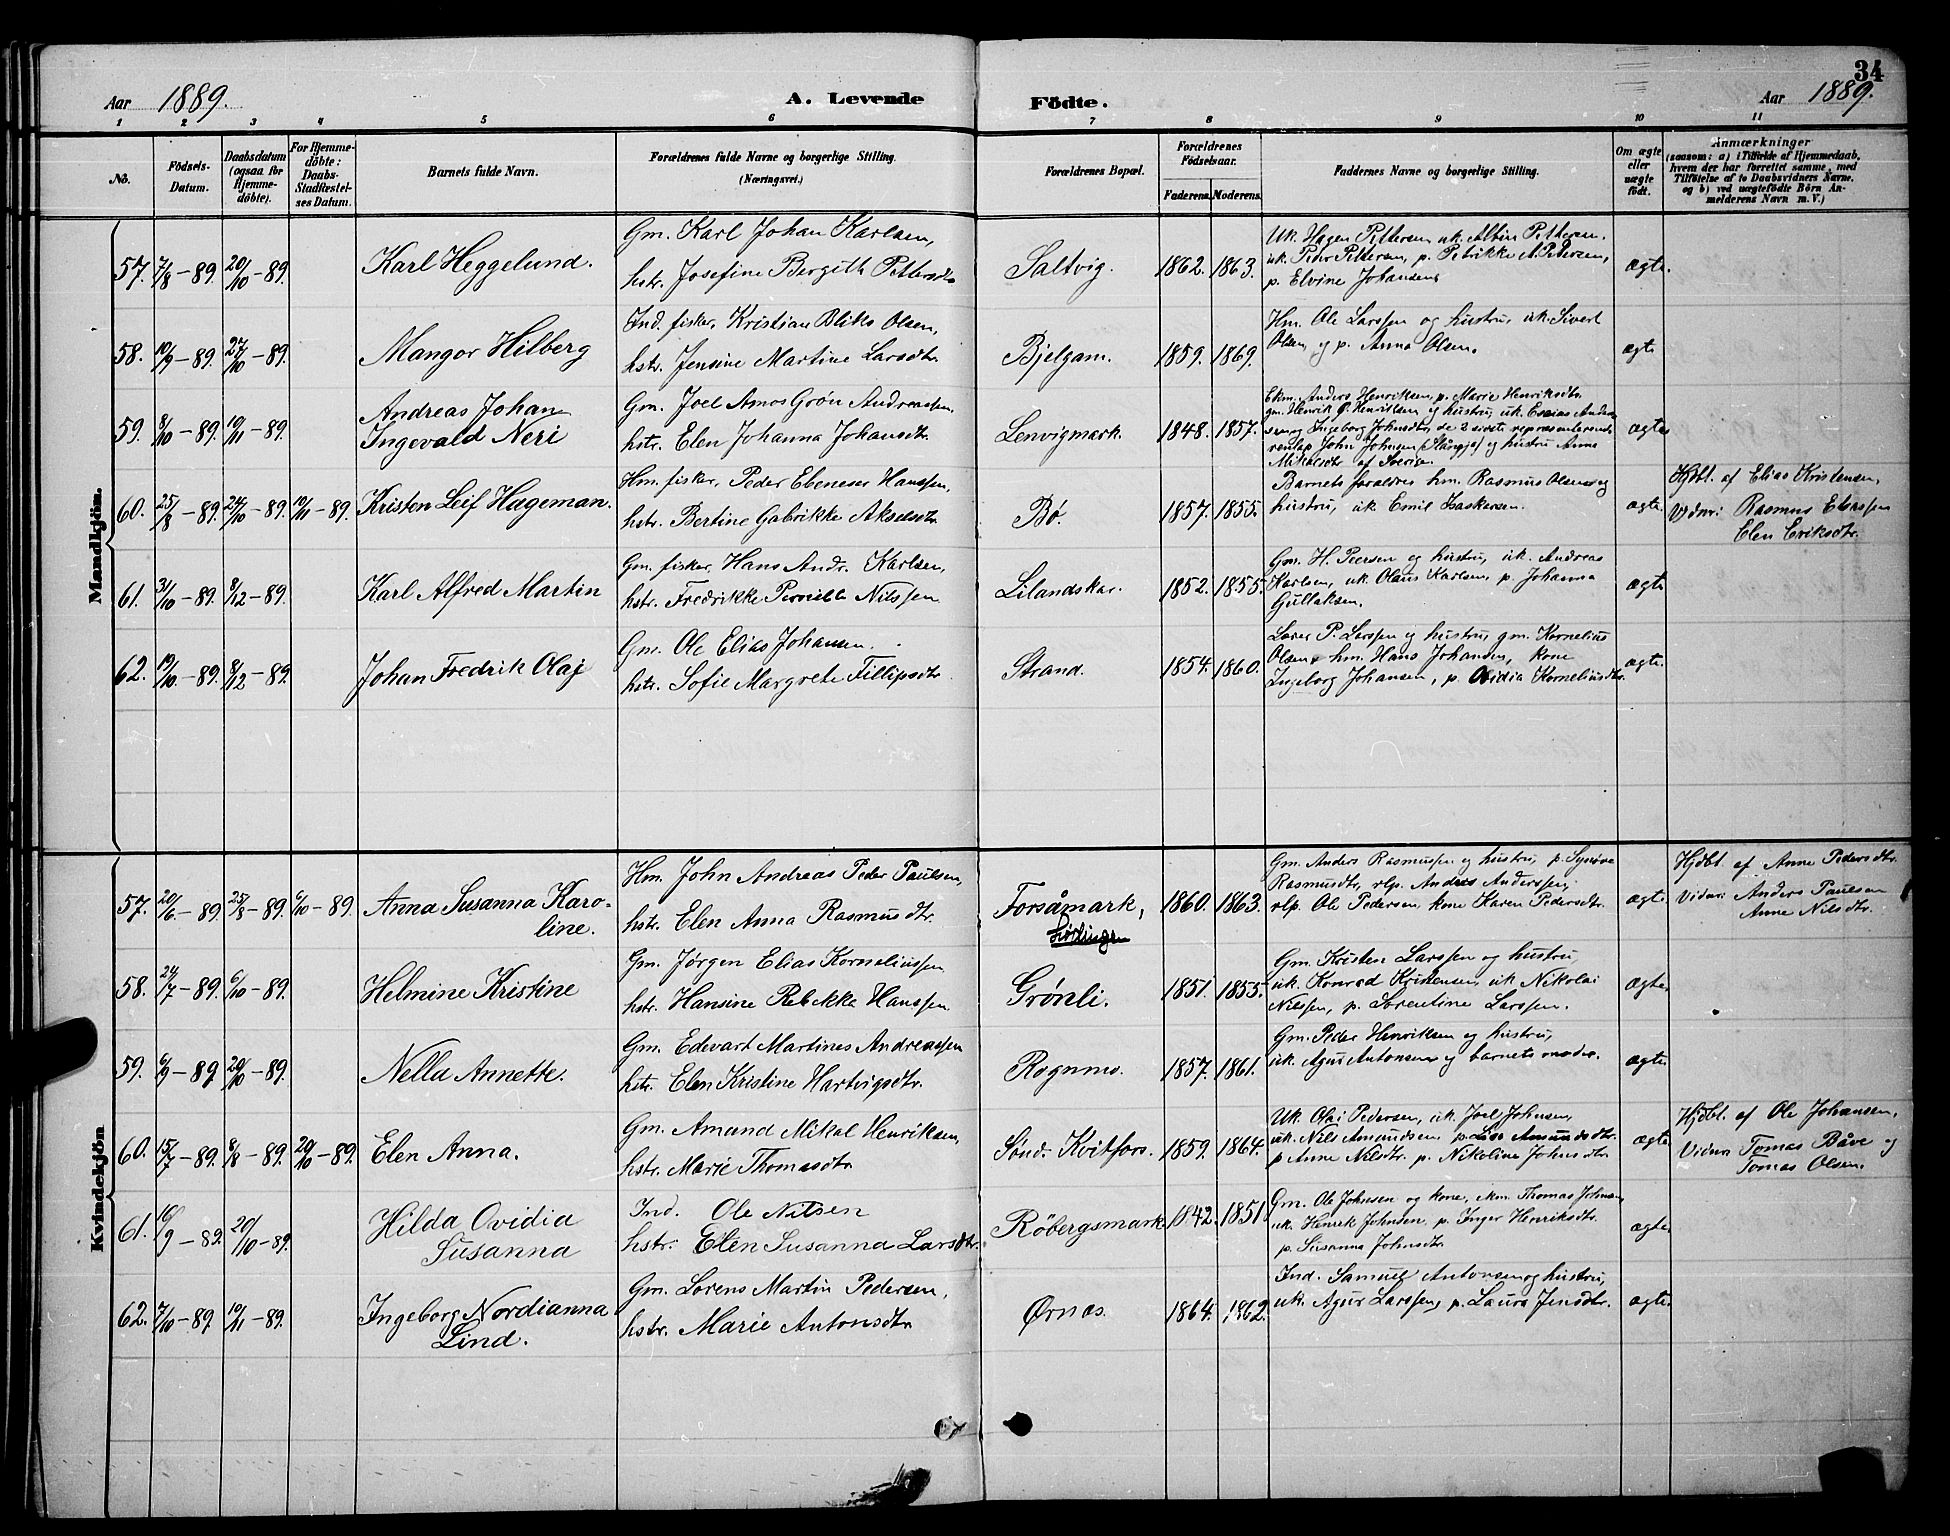 34
Aar 1889. A. Levende Födte. Aar 1889.
1 2 3 4 5 6 7 8 9 10 11
No. Födsels-Datum. Daabsdatum (ogsaa for Hjemmedöbte). For Hjemmedöbte: Daabs-Stadfæstelses Datum. Barnets fulde Navn. Forældrenes fulde Navne og borgerlige Stilling. (Næringsvei.) Forældrenes Bopæl. Forældrenes Födselsaar. Faderens. Moderens. Faddernes Navne og borgerlige Stilling. Om ægte eller uægte födt. Anmærkninger (saasom: a) i Tilfælde af Hjemmedaab, hvem der har forrettet samme, med Tilföielse af to Daabsvidners Navne, og b) ved uægtefödte Börn Anmelderens Navn m. V.)
Mandkjön.
57. 7/8-89. 20/10-89. Karl Heggelund. Gm. Karl Johan Karlsen,
hstr. Josefine Bergith Pettersdtr.
Saltvig. 1862. 1863.
Uk. Hagen Pettersen, uk. Albin Pettersen.
uk. Peter Pettersen, p. Petrikke A. Petersen,
p. Elvine Johansen.
ægte.
58. 10/9-89. 27/10-89. Mangor Hilberg
Ind. fisker, Kristian Bliks Olsen,
hstr. Jensine Martine Larsdtr.
Bjelgam. 1859. 1869.
Hm. Ole Larssen og hustru, uk. Sivert
Olsen, og p. Anna Olsen.
ægte
59. 8/10-89. 10/11-89. Andreas Johan
Ingevald Neri
Gm. Joel Amos Grön Andreassen.
hstr. Elen Johanna Johansdtr.
Lenvigmark. 1848. 1857.
Ekm. Anders Henriksen, p. Marie Henriksdtr.
gm. Henrik Henriksen og hustru, uk. Esaias Ander
sen og Ingeborg Johnsdtr, de 2 sidste repræsenterende
John Johnsen og hustru Anna
af Sverige.
ægte
60. 25/8-89. 24/10-89. 10/11-89. Kristen Leif Hageman.
Hm. fisker, Peder Ebeneser Hanssen,
hstr. Bertine Gabrikke Akselsdtr.
Bö. 1857. 1855.
Barnets foraldres hm. Rasmus Olsen og
hustru, uk. Emil Isaksen.
ægte.
Hjdbt. af Elias Kristensen,
Vidner: Rasmus Eliassen
Elen Eriksdtr.
61. 31/10-89. 8/12-89. Karl Alfred Martin
Gm. fisker, Hans Andr. Karlsen,
hstr. Fredrikke Pernille Nilssen
Lilandskar. 1852. 1855.
Gm. H. Peersen og hustru, uk. Andreas
Karlsen, uk. Olaus Karlsen, p. Johanna
Gullaksen.
ægte
62. 19/10-89. 8/12-89. Johan Fredrik Olaf
Gm. Ole Elias Johansen.
hstr. Sofie Margrete Fillipsdtr.
Strand. 1854. 1860.
P. Larssen og hustru, gm. Kornelius
Olsen, hm. Hans Johansen, kone
Ingeborg Johansen, p. Ovidia Korneliusdtr.
ægte.
Kvindekjön
57. 20/6-89. 25/8-89. 6/10-89. Anna Susanna Karo-
line.
Hm. John Andreas Peder Paulsen,
hstr. Elen Anna Rasmusdtr.
Forsåmark, 1860. 1863.
Gm. Anders Rasmussen og hustru, p. Synöve
Rasmusdtr, rlp. Andras Anderssen,
rlp. Ole Pedersen, kone Karen Pedersdtr.
ægte.
Hjdbt. af Anne Pedersdtr.
Vidner: Anders Paulsen
Anne Nilsdtr.
58. 24/7-89. 6/10-89. Helmine Kristine
Gm. Jörgen Elias Korneliussen
hstr. Hansine Rebekke Hanssen.
Grönli. 1851. 1855.
Gm. Kristen Larssen og hustru,
uk. Konrad Kristensen, uk. Nikolai
Nilssen, p. Sorentine Larssen.
ægte.
59. 6/9-89. 20/10-89. Nella Annette.
Gm. Edevart Martines Andreassen
hstr. Elen Kristine Hartvigsdtr.
Rognmo. 1857. 1861.
Gm. Peder Henriksen og hustru,
uk. Agur Antonsen og barnets moder.
ægte.
60. 15/7-89. 8/8-89. 20/10-89. Elen Anna.
Gm. Amand Mikal Henriksen,
hstr. Marie Thomasdtr.
Sönd. Kvitfors. 1859. 1864.
Uk. Olai Pedersen, uk. Joel Johnsen,
uk. Nils Amundsen, p. Lise Amundsdtr.
p. Anne Nilsdtr. p. Nikoline Johnsdtr.
ægte.
Hjdbt. af Ole Johansen,
Vidner Tomas Båve og
Tomas Olsen.
61. 16/9-89. 20/10-89. Hilda Ovidia
Susanna
Ind. Ole Nilsen
hstr. Elen Susanna Larsdtr.
Röbergsmark. 1842. 1851.
Gm. Ole Johnsen og kone, ekm. Thomas Johnsen
uk. Henrik Johnsen, p. Inger Henriksdtr.
p. Susanna Johnsdtr.
ægte.
62. 7/10-89. 10/11-89. Ingeborg Nordianna
Lind.
Gm. Lorens Martin Pedersen,
hstr. Marie Antonsdtr.
Ørnæs. 1864. 1862.
Ind. Samuel Antonsen og hustru,
uk. Agur Larssen, p. Laura Jensdtr.
ægte.